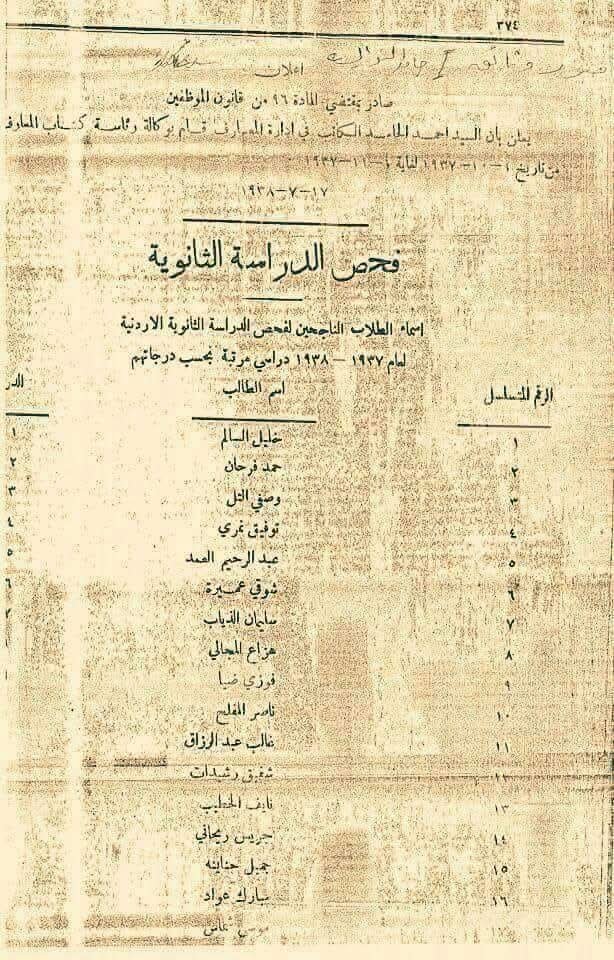 ٣٧٤
اعلان
صادر بمقتضى المادة ٩٦ من قانون الموظفين
يعلن بان السيد احمد الحامد الكاتب في ادارة المعارف قام بوكالة رئاسة كتاب المعارف
من تاريخ ١-١٠-١٩٣٧ لغاية ٤-١١-١٩٣٧
١٧-٧-٩٣٨
فحص الدراسة الثانوية
اسماء الطلاب الناجحين لفحص الدراسة الثانوية الاردنية
لعام ١٩٣٧ - ١٩٣٨ دراسي مرتبة بحسب درجاتهم
الرقم المتسلسل اسم الطالب الدر
١ خليل السالم ١
٢ حمد فرحان ٢
٣ وصفي التل ٣
٤ توفيق نمري ٤
٥ عبد الرحيم الصمد ٥
٦ شوقي عميرة ٦
٧ سليمان الذياب
٨ هزاع المجالي
٩ فوزي ضبا
١٠ ناصر المفلح
١١ غالب عبد الرزاق
١٢ شفيق رشيدات
١٣ نايف الخطيب
١٤ جريس ريحاني
١٥ جميل حناينه
١٦ مبارك عواد
موسى شماس